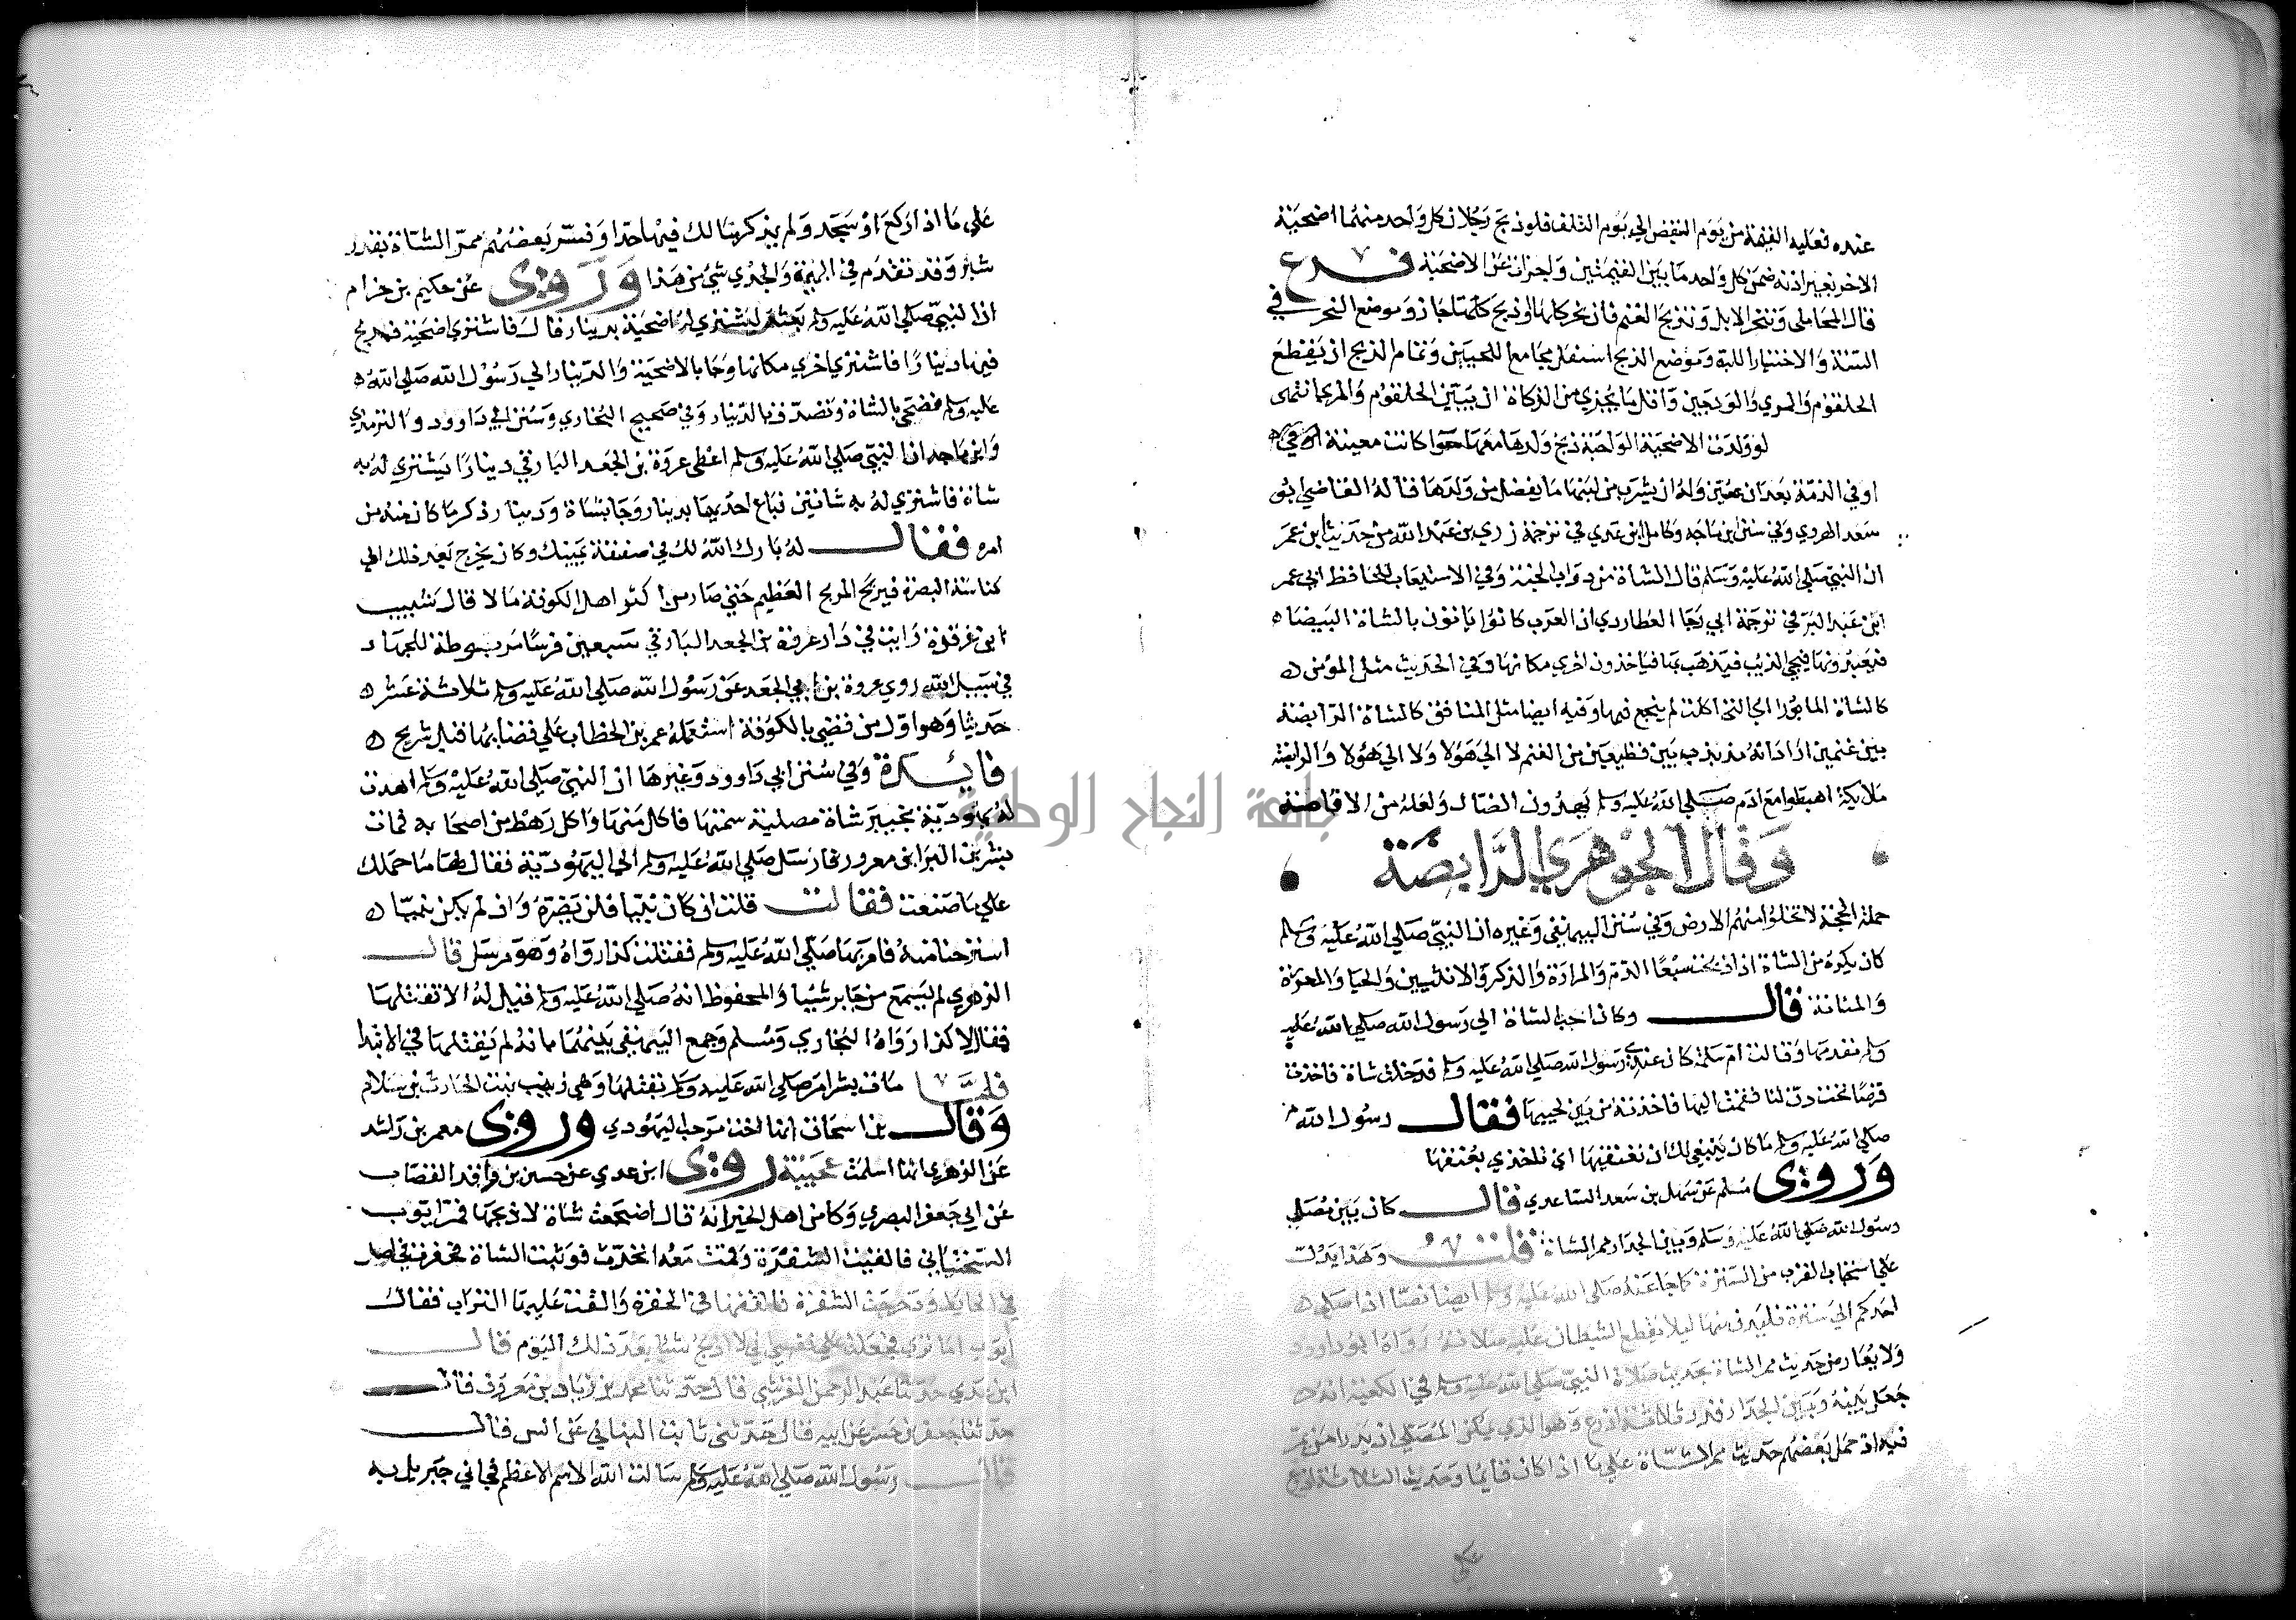 عنده فعليه القيمة من يوم القبض الى يوم التلف فلو ذبح رجلان كل واحد منهما اضحية
الاخر بغير اذنه ضمن كل واحد ما بين القيمتين واجزات عن الاضحية فرع
قال المحاملي وتنحر الابل وتذبح الغنم فان نحر كلها او ذبح كلها جاز وموضع النحر في
السنة والاختيار اللبة وموضع الذبح اسفل مجامع اللحيين وتمام الذبح ان يقطع
الحلقوم والمري والودجين واقل ما يجزي من الذكاة ان يبين الحلقوم والمري انتهى
لو ولدت الاضحية الواجبة ذبح ولدها معها سوا كانت معينة
او في الذمة بعد ان عين وله ان يشرب من لبنها ما يفضل من ولدها قاله القاضي ابو
سعد الهروي وفي سنن ابن ماجه وكامل ابن عدي في ترجمة زربي بن عبد الله من حديث ابن عمر
ان النبي صلي الله عليه وسلم قال الشاة من دواب الجنة وفي الاستيعاب للحافظ ابي عمر
ابن عبد البر في ترجمة ابي رجا العطاردي ان العرب كانوا ياتون بالشاة البيضا
فيعبدونها فيجي الذيب فيذهب بها فياخذون اخري مكانها وفي الحديث مثل المؤمن
كالشاة المابورة اي التي اكلت لم ينجع فيها وفيه ايضا مثل المنافق كالشاة الرابضة
بين غنمين اراد انه مذبذب بين قطيعين من الغنم لا الي هولا ولا الي هولا والرابضة
ملايكة اهبطوا مع ادم صلي الله عليه وسلم يهدون الضال ولعله من الاقامة
وقال الجوهري الرابضة
حملة الحجة لا تخلوا منهم الارض وفي سنن البيهقي وغيره ان النبي صلي الله عليه وسلم
كان يكره من الشاة اذا ذبحت سبعا الدم والمرارة والذكر والانثيين والحيا والغدة
والمثانة قال وكان احب الشاة الي رسول الله صلي الله عليه
وسلم مقدمها وقالت ام سلمة كان عندي رسول الله صلي الله عليه وسلم فدخلت شاة فاخذت
قرصا تحت دن لنا فقمت اليها فاخذته من بين لحييها فقال رسول الله
صلي الله عليه وسلم ما كان ينبغي لك ان تعنفيها اي تاخذي بعنقها
وروى مسلم عن سهل بن سعد الساعدي قال كان بين مصلي
رسول الله صلي الله عليه وسلم وبين الجدار ممر الشاة قلت وهذا يدل
علي استحباب القرب من السترة كما جا عنه صلي الله عليه وسلم ايضا نصا اذا صلي
احدكم الي سترة فليدن منها ليلا يقطع الشيطان عليه صلاته رواه ابو داوود
ولا يعارض حديث ممر الشاة بحديث صلاة النبي صلي الله عليه وسلم في الكعبة انه
جعل بينه وبين الجدار قدر ثلاثة اذرع وهو الذي يمكن المصلي ان يدرا من يمر
فيه اذ حمل بعضهم حديث ممر الشاة علي ما اذا كان قايما وحديث الثلاثة اذرع
علي ما اذا ركع او سجد ولم يذكر مالك في هذا حدا وفسر بعضهم ممر الشاة بقدر
شبر وقد تقدم في البهمة والجدي شي من هذا وروى عن حكيم بن حزام
ان النبي صلي الله عليه وسلم بعثه ليشتري له اضحية بدينار قال فاشتري اضحية فربح
فيها دينارا فاشتري اخري مكانها وجا بالاضحية والدينار الي رسول الله صلي الله
عليه وسلم فضحي بالشاة وتصدق بالدينار وفي صحيح البخاري وسنن ابي داوود والترمذي
وابن ماجه ان النبي صلي الله عليه وسلم اعطي عروة بن الجعد البارقي دينارا يشتري له به
شاة فاشتري له به شاتين فباع احديهما بدينار وجا بشاة ودينار وذكر ما كان من
امره فقال له بارك الله لك في صفقة يمينك وكان يخرج بعد ذلك الي
كناسة البصرة فيربح الربح العظيم حتي صار من اكثر اهل الكوفة مالا قال شبيب
ابن غرقدة رايت في دار عروة بن الجعد البارقي سبعين فرسا مربوطة للجهاد
في سبيل الله روي عروة بن ابي الجعد عن رسول الله صلي الله عليه وسلم ثلاثة عشر
حديثا وهو اول من قضي بالكوفة استعمله عمر بن الخطاب علي قضايها قبل شريح
فايدة وفي سنن ابي داوود وغيرها ان النبي صلي الله عليه وسلم اهدت
له يهودية بخيبر شاة مصلية سمتها فاكل منها واكل رهط من اصحابه فمات
بشر بن البرا بن معرور فارسل صلي الله عليه وسلم الي اليهودية فقال لها ما حملك
علي ما صنعت فقالت قلت ان كان نبيا فلن يضره وان لم يكن نبيا
استرحنا منه فامر بها صلي الله عليه وسلم فقتلت كذا رواه وهو مرسل قال
الزهري لم يسمع من جابر شييا والمحفوظ انه صلي الله عليه وسلم قيل له الا تقتلها
فقال لا كذا رواه البخاري ومسلم وجمع البيهقي بينهما بانه لم يقتلها في الابتدا
فلما مات بشر امر صلي الله عليه وسلم بقتلها وهي زينب بنت الحارث بن سلام
وقال بن اسحاق انها اخت مرحب اليهودي وروى معمر بن راشد
عن الزهري انها اسلمت روى ابن عدي عن حسن بن واقد القصاب
عن ابي جعفر البصري وكان من اهل الخير انه قال اضجعت شاة لاذبحها فمر ايوب
السختياني فالقيت الشفرة وقمت معه اتحدث فوثبت الشاة فحفرت في اصل
الحايط ودحرجت الشفرة فالقتها في الحفرة والقت عليها التراب فقال
ايوب اما تري فجعلت علي نفسي ان لا اذبح شيئا بعد ذلك اليوم قال
ابن عدي حدثنا عبد الرحمن القرشي قال حدثنا محمد بن زياد بن معروف قال
حدثنا جعفر بن حسن عن ابيه قال حدثني ثابت البناني عن انس قال
قال رسول الله صلي الله عليه وسلم سالت الله الاسم الاعظم فجاني جبريل به
جامعة النجاح الوطنية